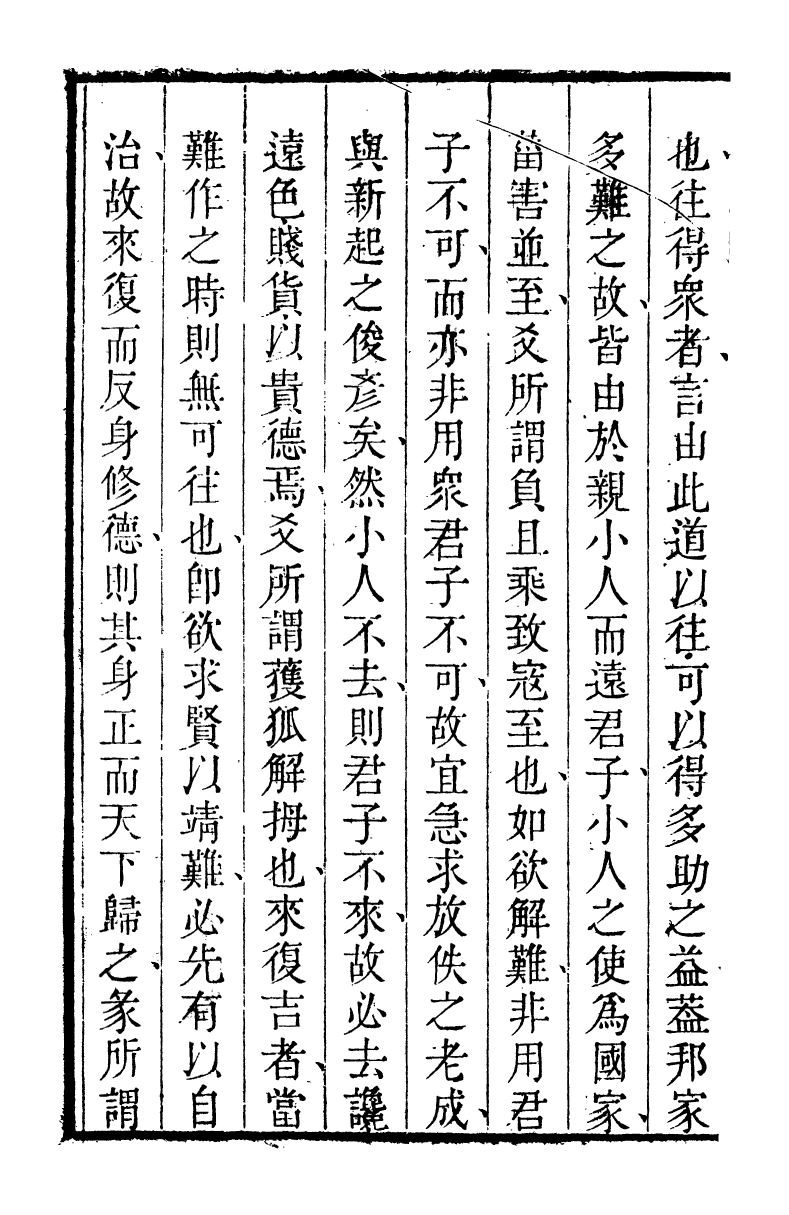 也往得衆者言由此道以往可以得多助之益葢邦家
多難之故皆由於親小人而遠君子小人之使爲國家
菑害並至爻所謂負且乘致寇至也如欲解難非用君
子不可而亦非用衆君子不可故宜急求放佚之老成
與新起之俊彥矣然小人不去則君子不來故必去讒
遠色賤貨以貴德焉爻所謂獲狐解拇也來復吉者當
難作之時則無可往也卽欲求賢以靖難必先有以自
治故來復而反身修德則其身正而天下歸之彖所謂